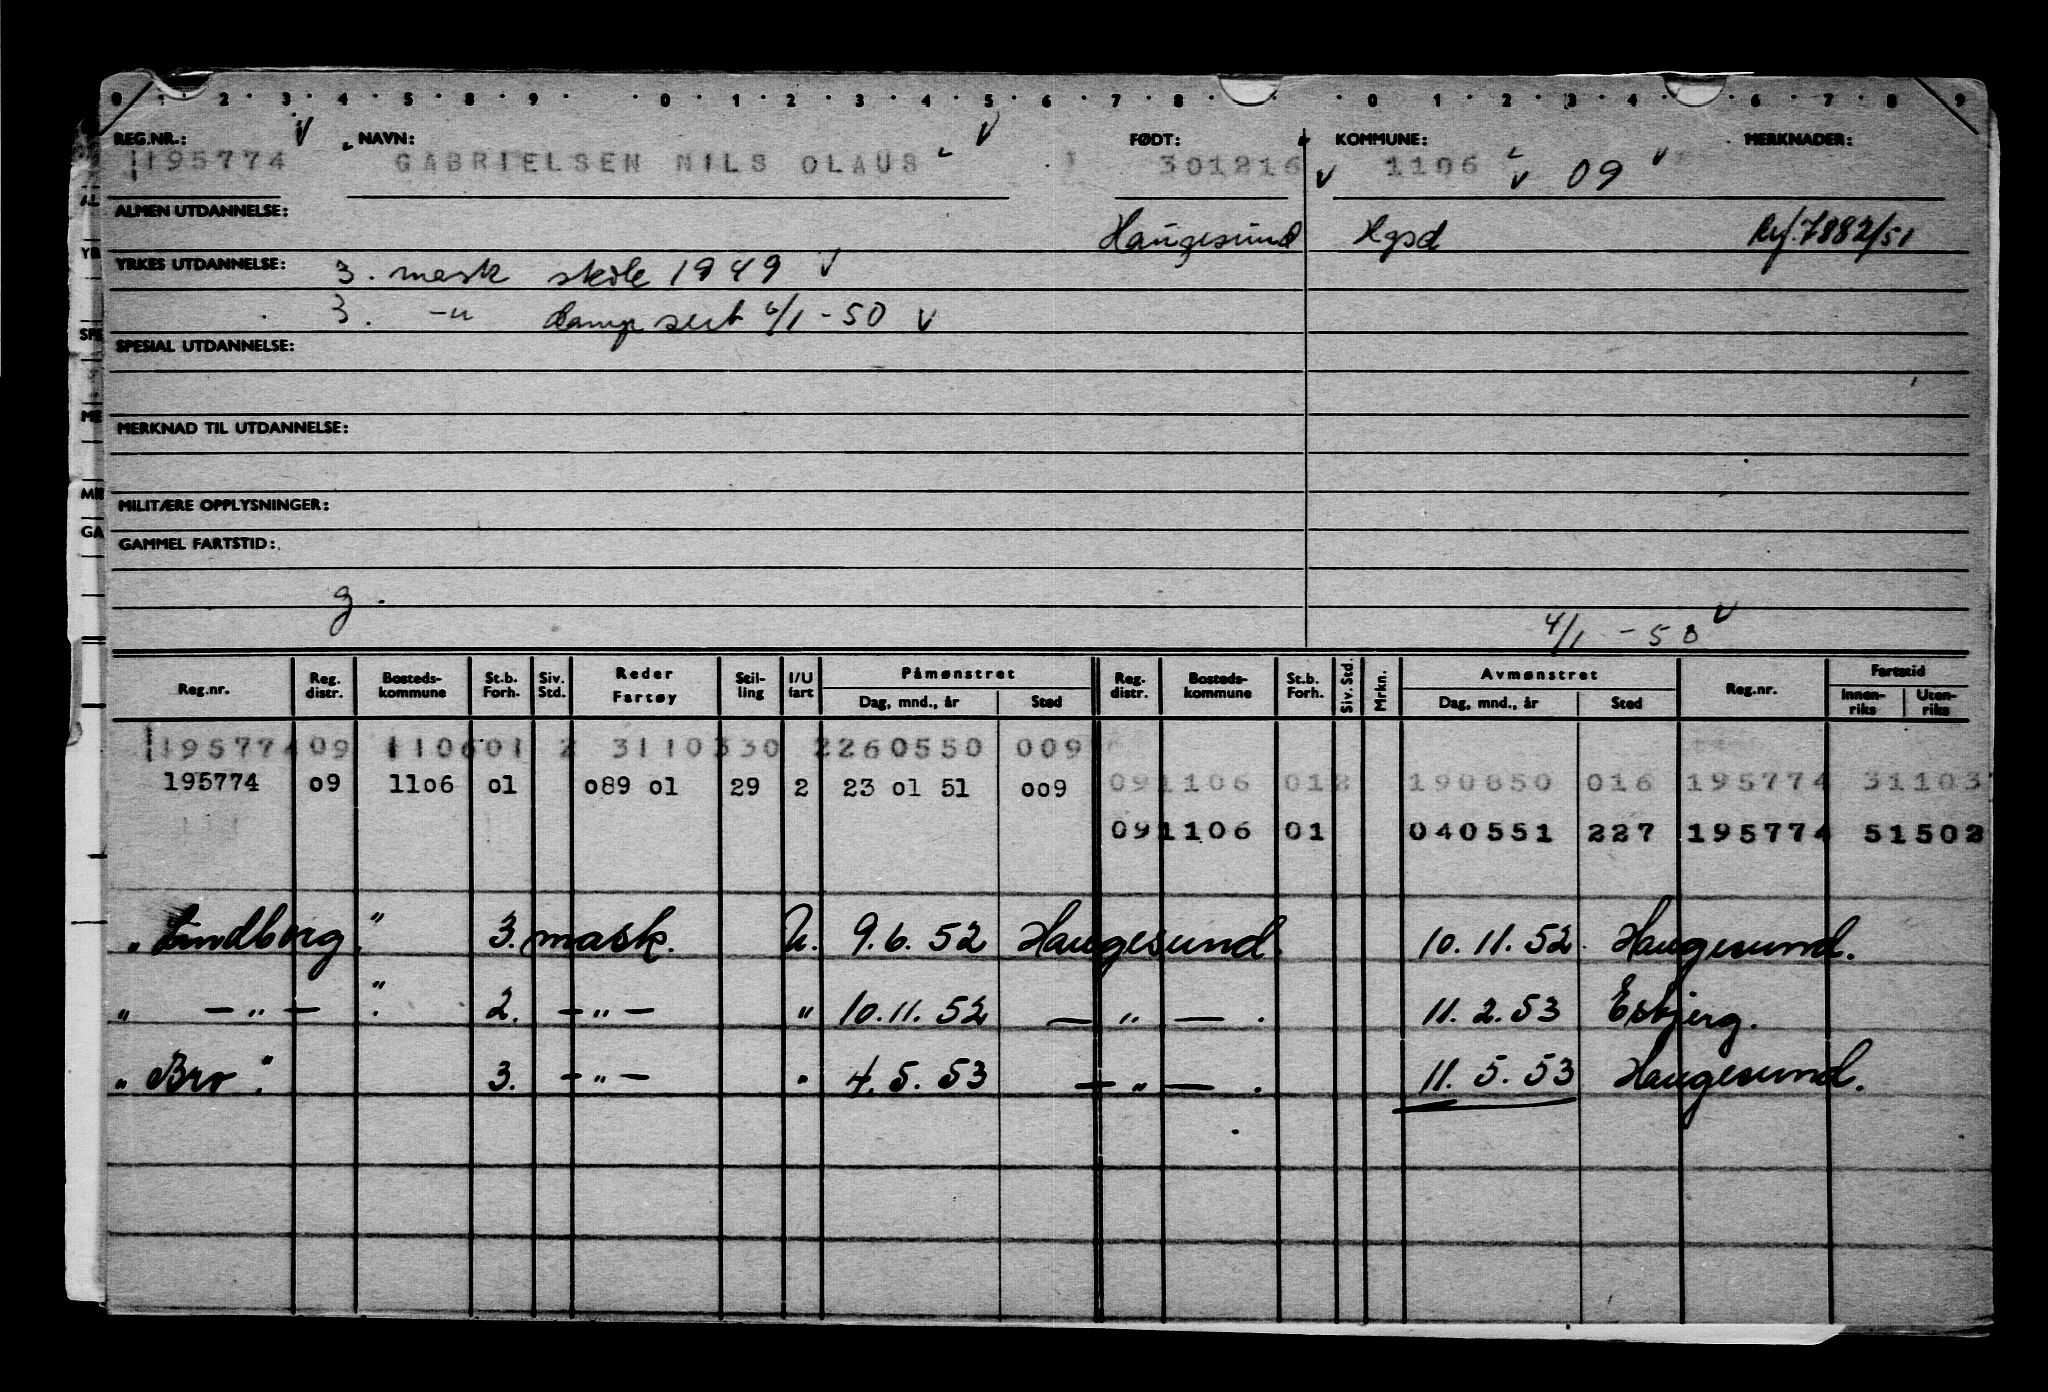 0 1 2 3 4 5 8 9 0 1 2 3 4 5 6 7 8 0 1 2 3 4 6 7 8 9
REG.NR.: NAVN: FØDT: KOMMUNE: MERKNADER:
195774 GABRIELSEN NILS OLAUS 301216 1106 09
ALMEN UTDANNELSE: Haugesund Hgsd Ref. 7882/51
YRKES UTDANNELSE: 3. mask skole 1949
3. -"- damp sert 4/1-50
SPESIAL UTDANNELSE:
MERKNAD TIL UTDANNELSE:
MILITÆRE OPPLYSNINGER:
GAMMEL FARTSTID:
g.
4/1 - 50
Reg.nr. Reg. distr. Bosteds-kommune St.b. Forh. Siv. Std. Reder Fartøy Stil-ling I/U fart Påmønstret Dag, mnd., år Sted Reg. distr. Bosteds-kommune St.b. Forh. Siv. Std. Mrkn. Avmønstret Dag, mnd., år Sted Reg.nr. Fartstid Innen-riks Uten-riks
195774 09 1106 01 2 3110330 2 260550 009
195774 09 1106 01 089 01 29 2 23 01 51 009 09 1106 01 2 190850 016 195774 31103
09 1106 01 040551 227 195774 51502
"Lindborg". 3. mask. U. 9.6.52 Haugesund. 10.11.52. Haugesund.
" -"- ". 2. -"- " 10.11.52 -"- . 11.2.53 Esbjerg.
"Bro". 3. -"- " 4.5.53 -"- . 11.5.53 Haugesund.